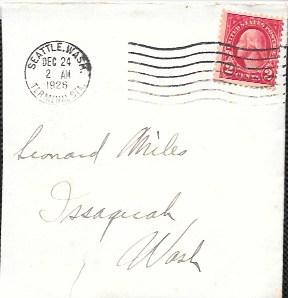 SEATTLE, WASH.
DEC 24
2 AM
1926
TERMINAL STA.
UNITED STATES POSTAGE
2 2
CENTS
Leonard Miles
Issaquah
Wash